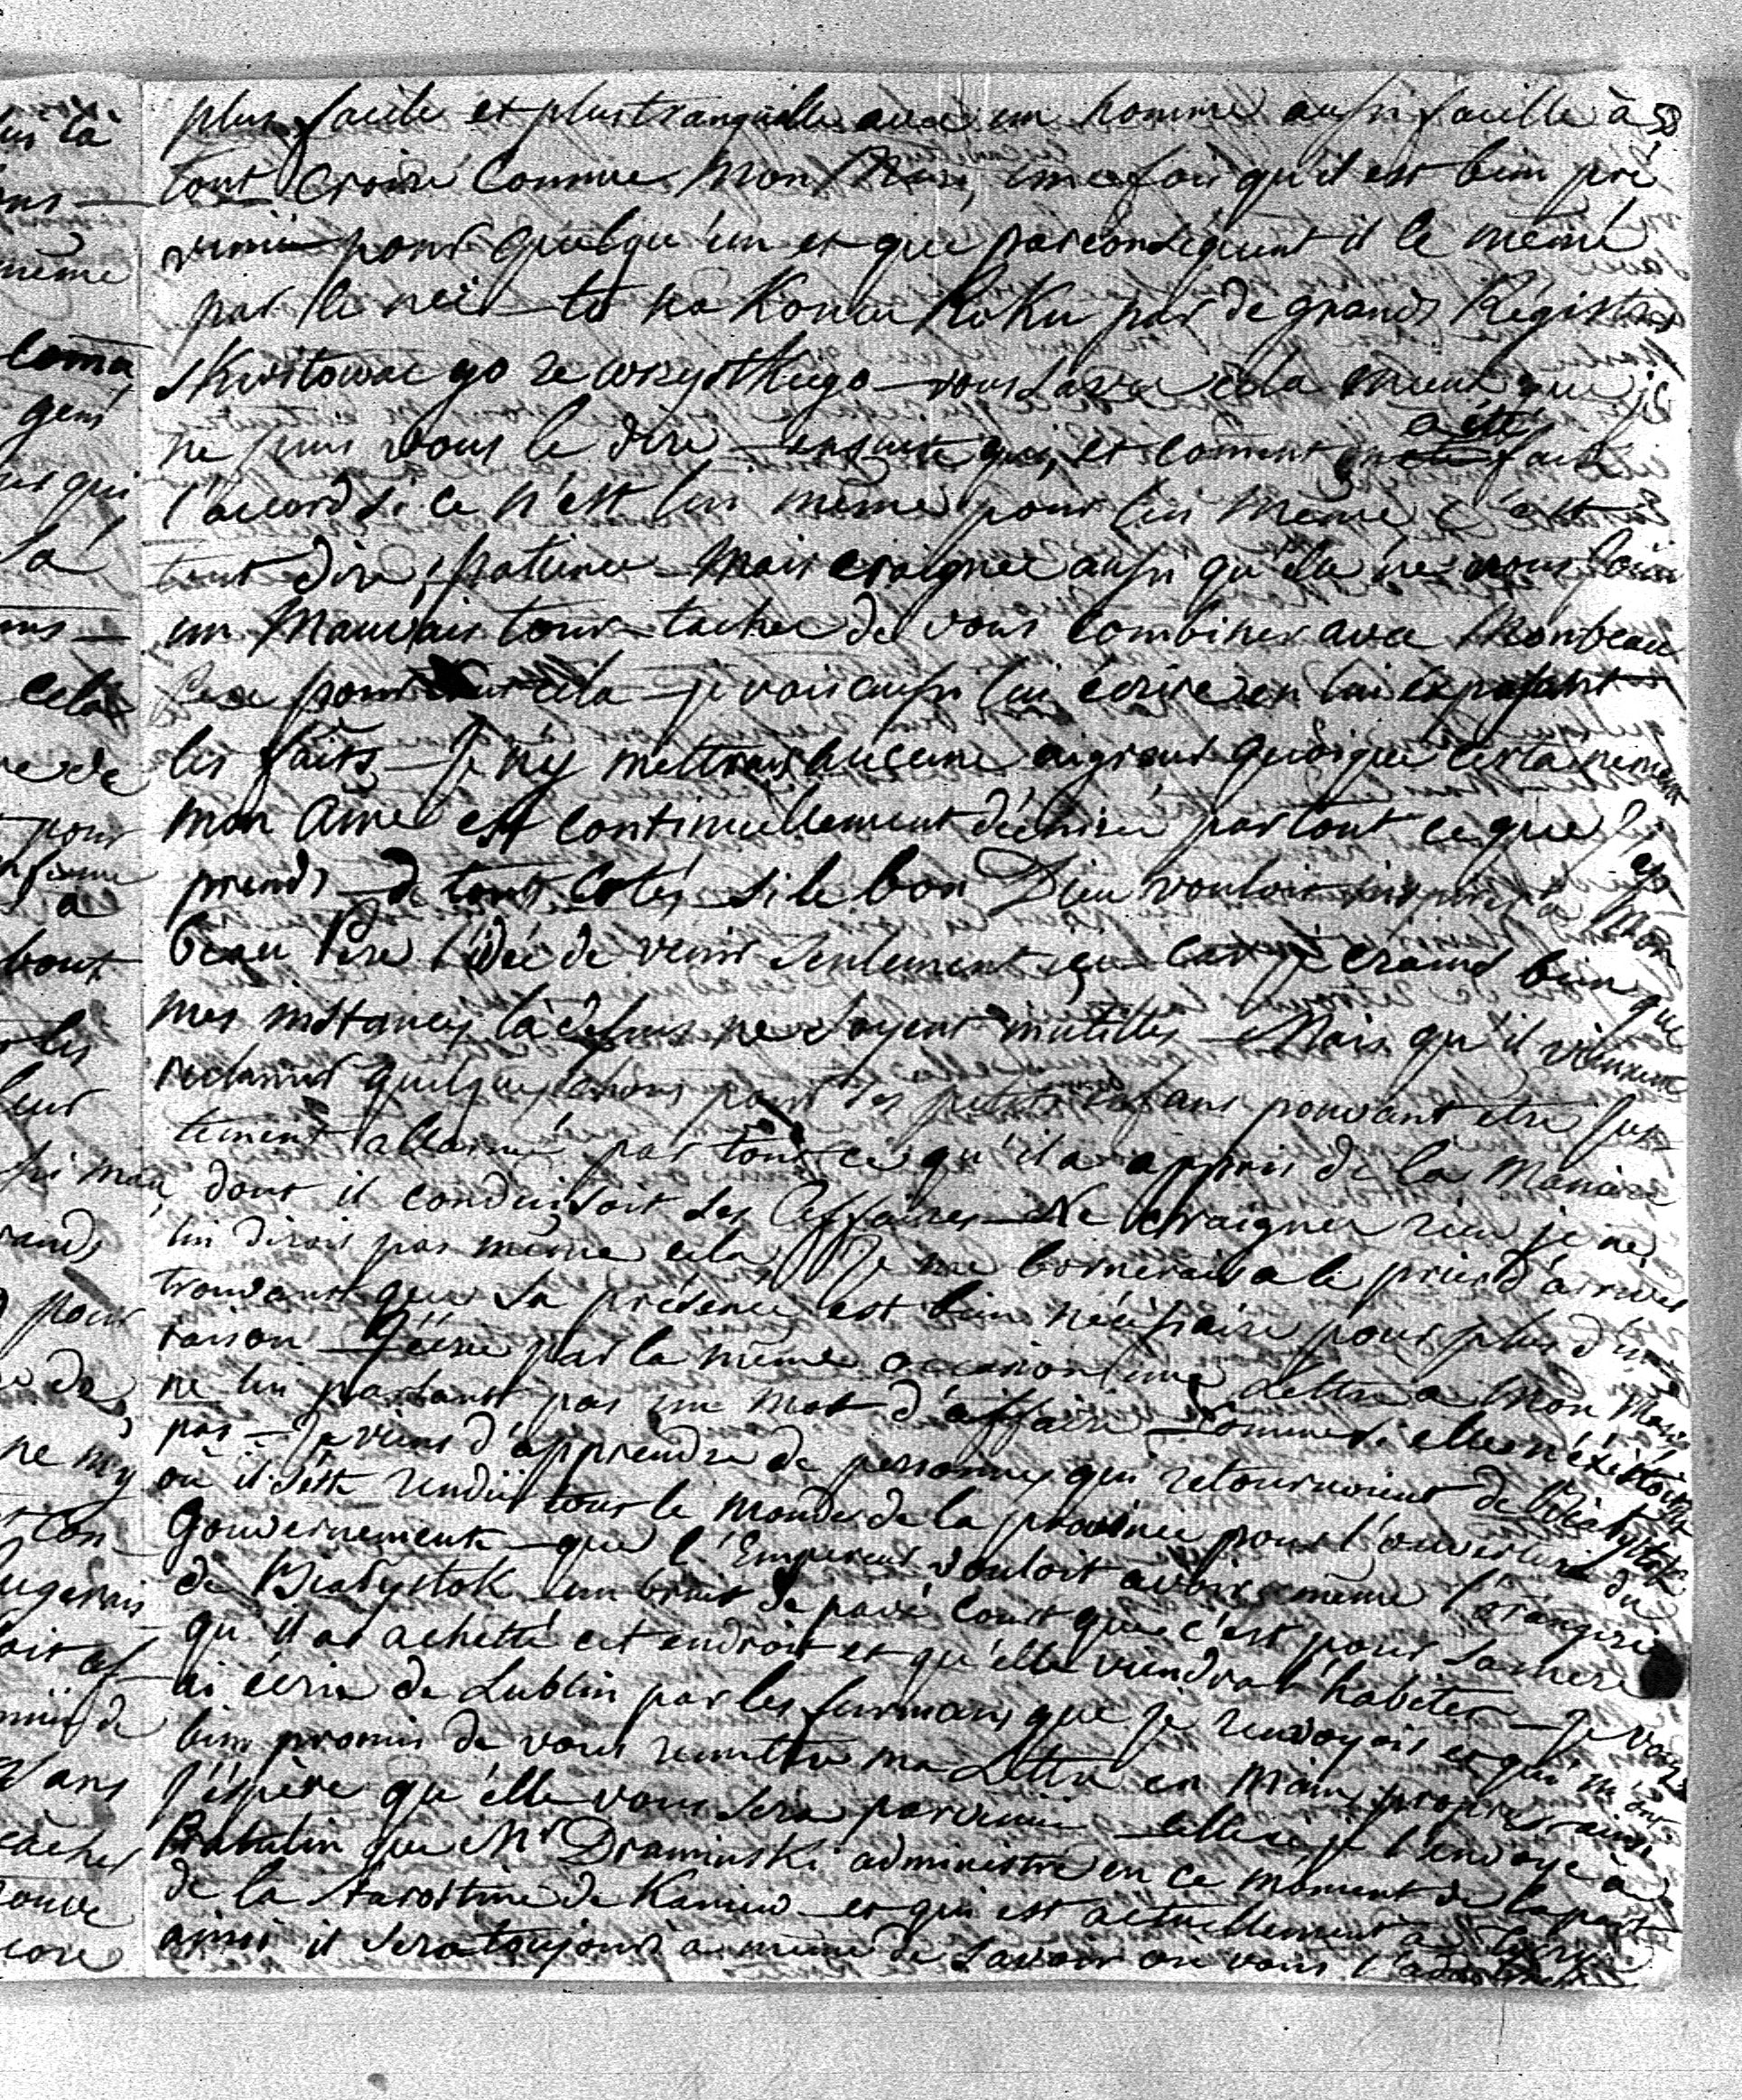 plus facile et plus tranquille avec un homme aussi facille à
tout croire comme Mon Mari, une fois qu'il est bien pré
venü pour quelqu'un et que parconséquent il le mene
par le nez — to na koncu Roku par de grands Régistres
skwitować go ze wszystkiego — vous savez cela mieux que je
ne puis vous le dire — ensuite qui, et coment a été fait
l'accord si ce n'est lui même pour lui même c'est
tout dire, patience — Mais craignez aussi qu'il ne vous fasse
un Mauvais tour — tachez de vous combiner avec Mon beau
Pere pour cela — je vais aussi lui ecrire en lui exposant
les faits — Je n'y mettrais aucune aigreur quoique certainement
mon Ame est continuellement déchirée par tout ce que j'ap
prends de tous cotés. Si le bon Dieu vouloit inspirer à Mon
beau Pere l'idée de venir seulement içi car je crains bien que
mes instances là dessus ne soyent inutilles — Mais qu'il vienne
reclamer quelque chose pour ses petits enfans pouvant etre jus-
tement allarmé par tout ce qu'il a appris de la Maniere
dont il conduisoit ses Affaires — Ne craignez rien je ne
lui dirois pas même cela, Je me bornerais a le prier d'arriver
trouvant que sa présence est bien nécéssaire pour plus d'une
raison — J'écris par la même occasion une Lettre a Mon Mari
ne lui parlant pas un mot d'affaire — Comme si elle n'éxistoit
pas — Je viens d'apprendre de personnes qui retournoient de Białystok
où il s'est rendü tout le monde de la province pour l'ouverture du
Gouvernement — que l'Empereur vouloit avoir même l'orangerie
de Białystok — un bruit de pavé court que c'est pour sa mere
qu'il a achetté cet endroit et qu'elle viendra l'habiter — Je vous
ai écrit de Lublin par les furmans que je renvoyois et qui m'ont
bien promis de vous remettre ma Lettre en Main propre ainsi
j'éspère qu'elle vous sera parvenüe — celle ci je l'envoye à
que Mr Draminski administre en ce moment de la part
de la Starostine de Kaniew — et qui est actuellement a
ainsi il sera toujours a même de savoir ou vous l'